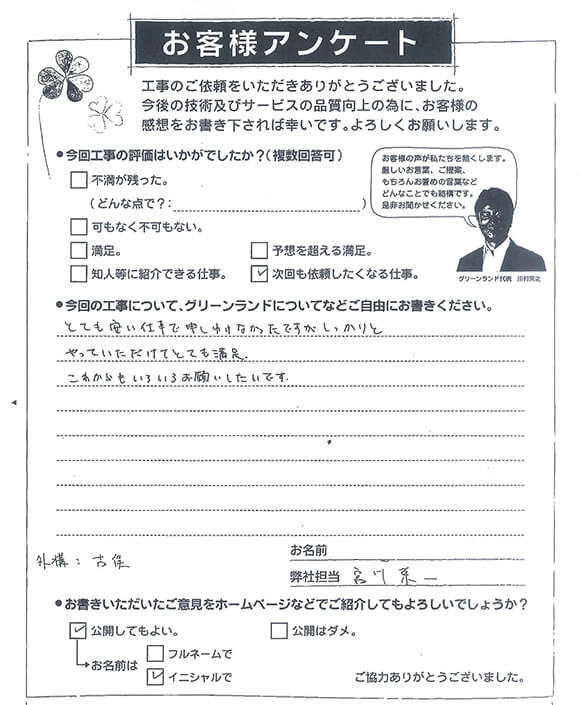 お客様アンケート
工事のご依頼をいただきありがとうございました。
今後の技術及びサービスの品質向上の為に、お客様の
感想をお書き下されば幸いです。よろしくお願いします。
●今回工事の評価はいかがでしたか?(複数回答可)
□不満が残った。
(どんな点で?: )
□可もなく不可もない。
□満足。
□予想を超える満足。
□知人等に紹介できる仕事。
☑次回も依頼したくなる仕事。
お客様の声が私たちを熱くします。
厳しいお言葉、ご提案、
もちろんお誉めの言葉など
どんなことでも結構です。
是非お聞かせください。
グリーンランド代表
●今回の工事について、グリーンランドについてなどご自由にお書きください。
とても安い仕事で申しわけなかったですがしっかりと
やっていただけてとても満足.
これからもいろいろお願いしたいです.
外構:
お名前
弊社担当 宮川
●お書きいただいたご意見をホームページなどでご紹介してもよろしいでしょうか?
☑公開してもよい。
□公開はダメ。
お名前は
□フルネームで
☑イニシャルで
ご協力ありがとうございました。